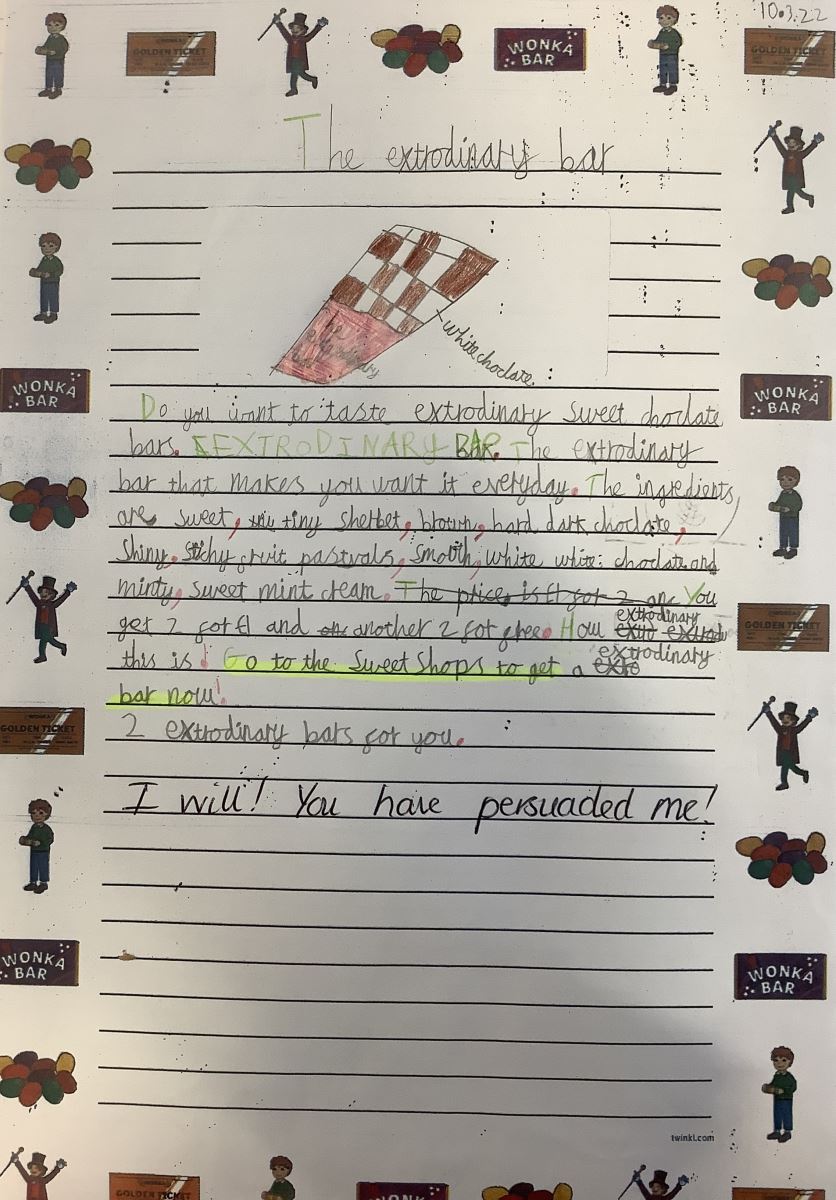 10.3.22
GOLDEN TICKET
WONKA BAR
GOLDEN TICKET
The extrodinary bar
The extrodinary bar
white choclate.
WONKA BAR
WONKA BAR
Do you want to taste extrodinary sweet choclate
bars. EXTRODINARY BAR. The extrodinary
bar that makes you want it everyday. The ingredients
are sweet, tiny sherbet, brown, hard dark choclate,
shiny, stichy fruit pastrals, smooth, white white choclate and
minty, sweet mint cream. The price is £1 for 2 an You
get 2 for £1 and another 2 for free. How extrodinary
this is! Go to the sweet shops to get a extrodinary
bar now!
2 extrodinary bars for you.
GOLDEN TICKET
GOLDEN TICKET
I will! You have persuaded me!
WONKA BAR
WONKA BAR
twinkl.com
GOLDEN TICKET
WONKA BAR